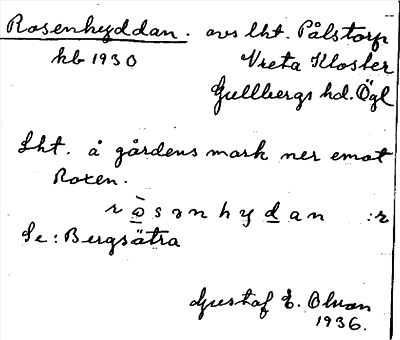 Rosenhyddan. avs lht. Pålstorp
kb 1930 Vreta Kloster
Gullbergs hd. Ögl
Lht. å gårdens mark ner emot
Roxen.
r ò s ə n h y d a n :r
Se: Bergsätra
Gustaf E. Olson
1936.